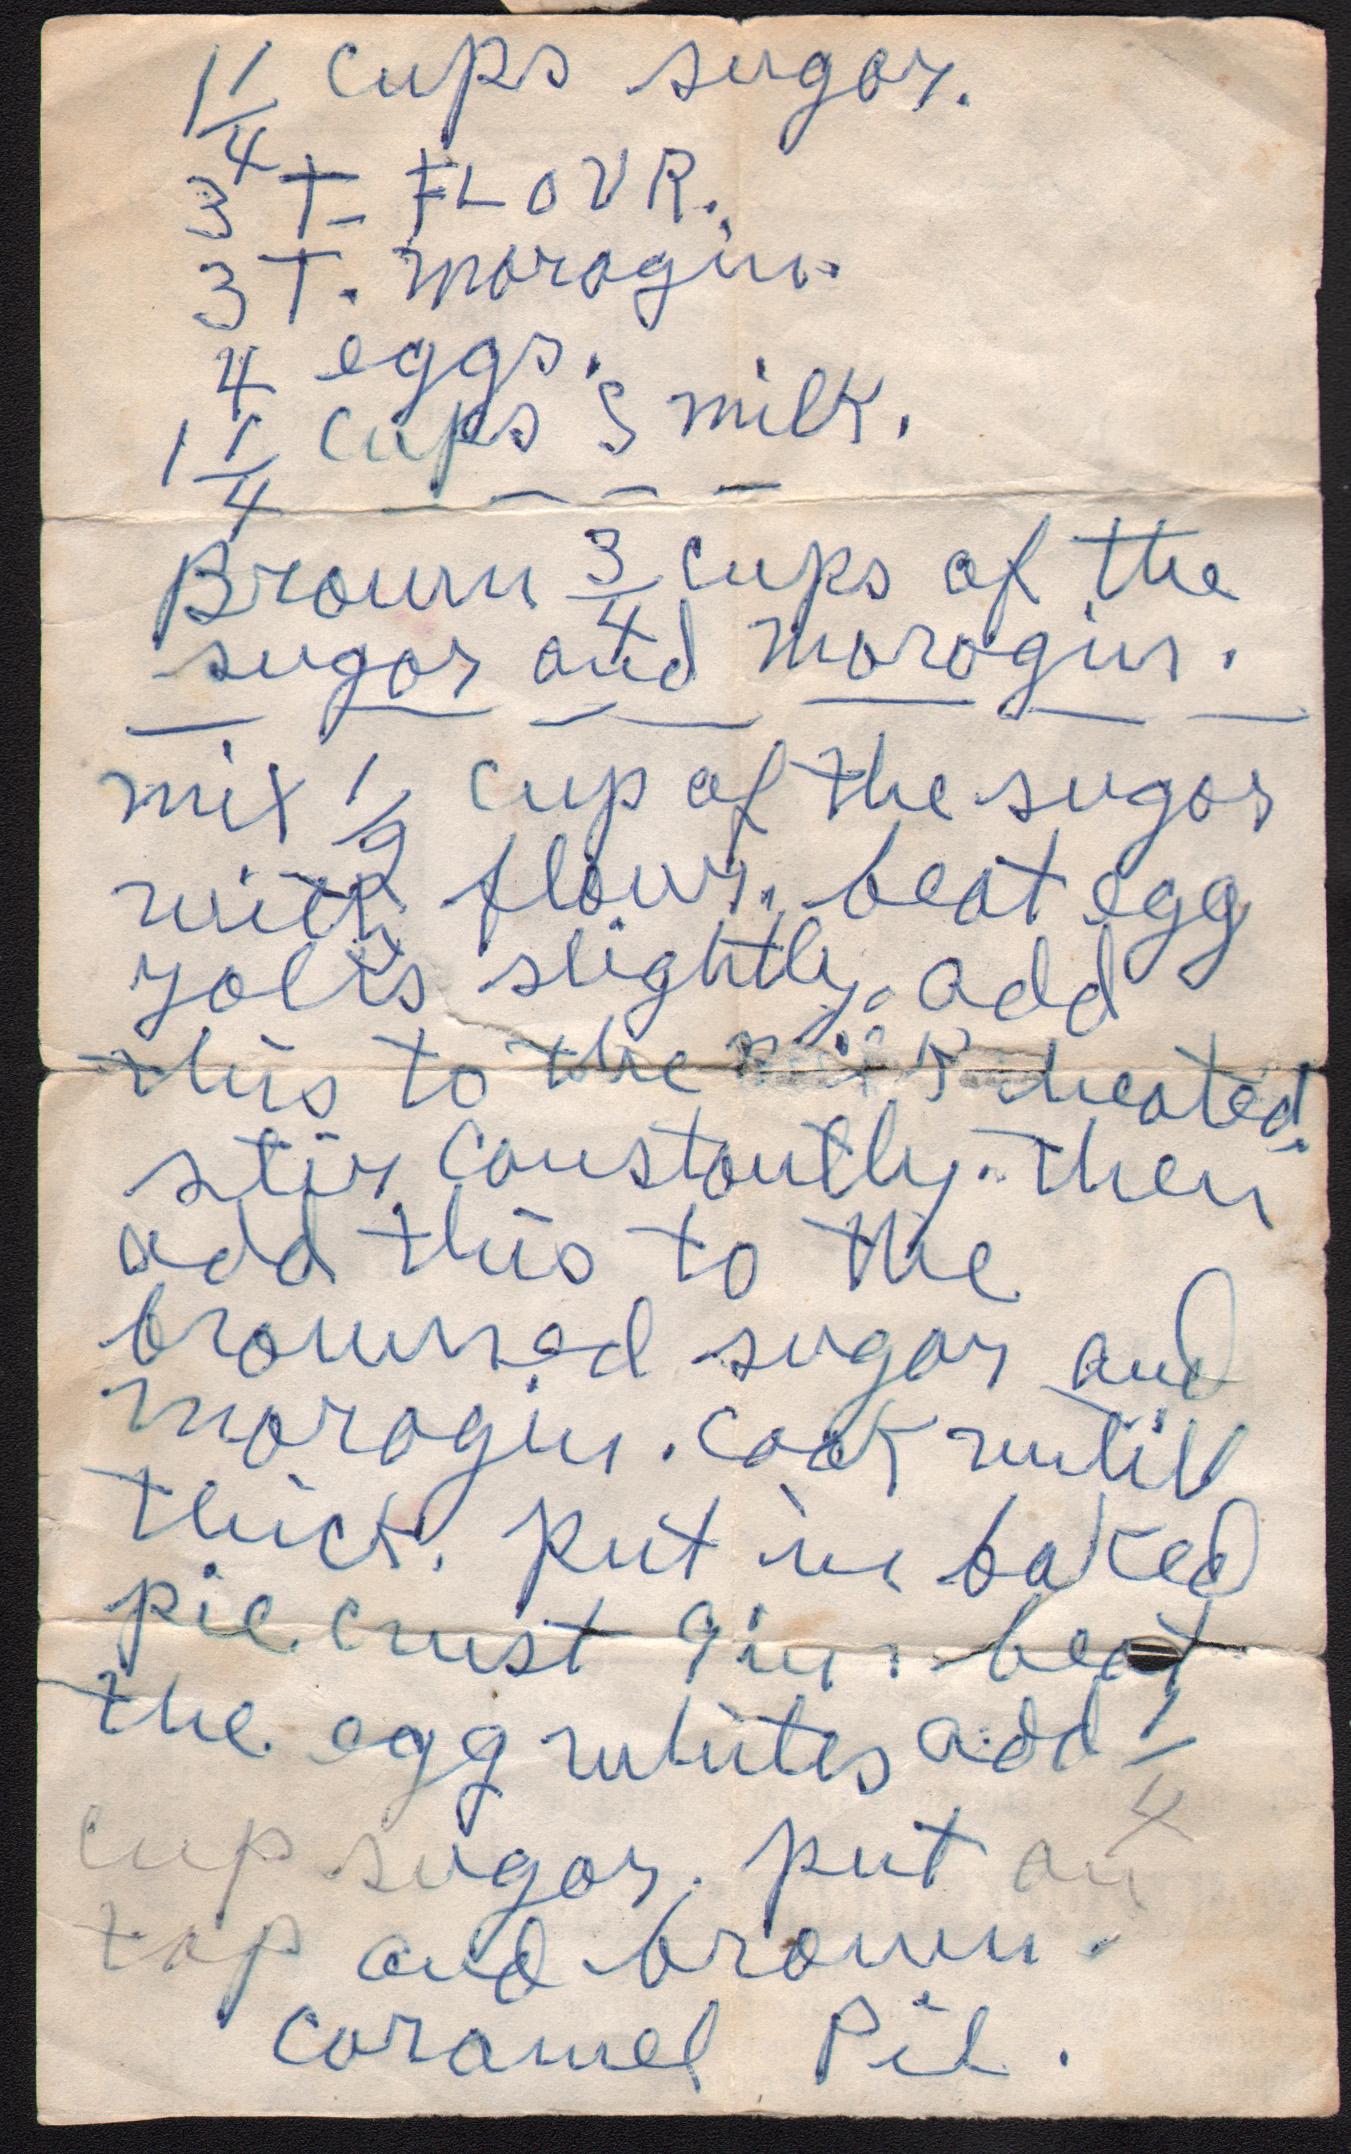 1 1/4 cups sugar.
3 T- FLOUR.
3 T. maragin.
4 eggs.
1 1/4 cups S milk.
Brown 3/4 cups of the
sugar and maragin.
mix 1/2 cup of the sugar
with flour. beat egg
yolks slightly. add
this to the heated.
stir constantly. Then
add this to the
browned sugar and
maragin. cook until
thick. put in baked
pie crust beat
the egg whites add 1/4
cup sugar. put on
top and brown.
Caramel Pie.